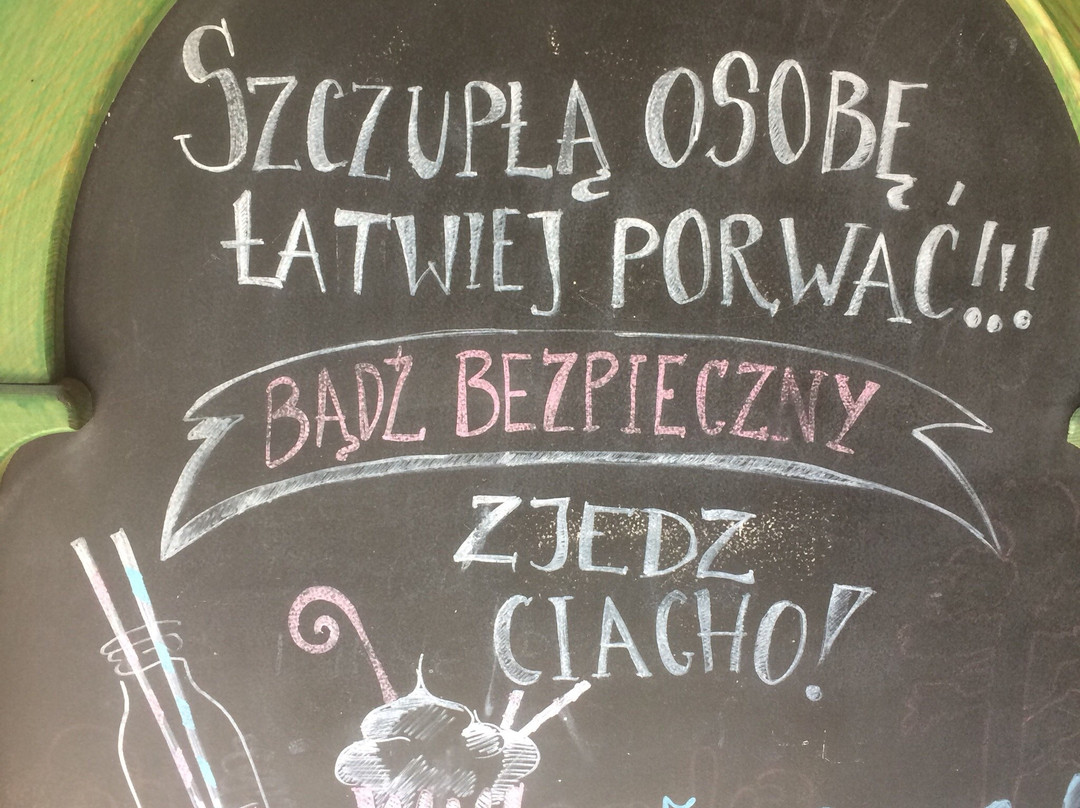 SZCZUPŁĄ OSOBĘ
ŁATWIEJ PORWAĆ!!!
BĄDŹ BEZPIECZNY
ZJEDZ
CIACHO!